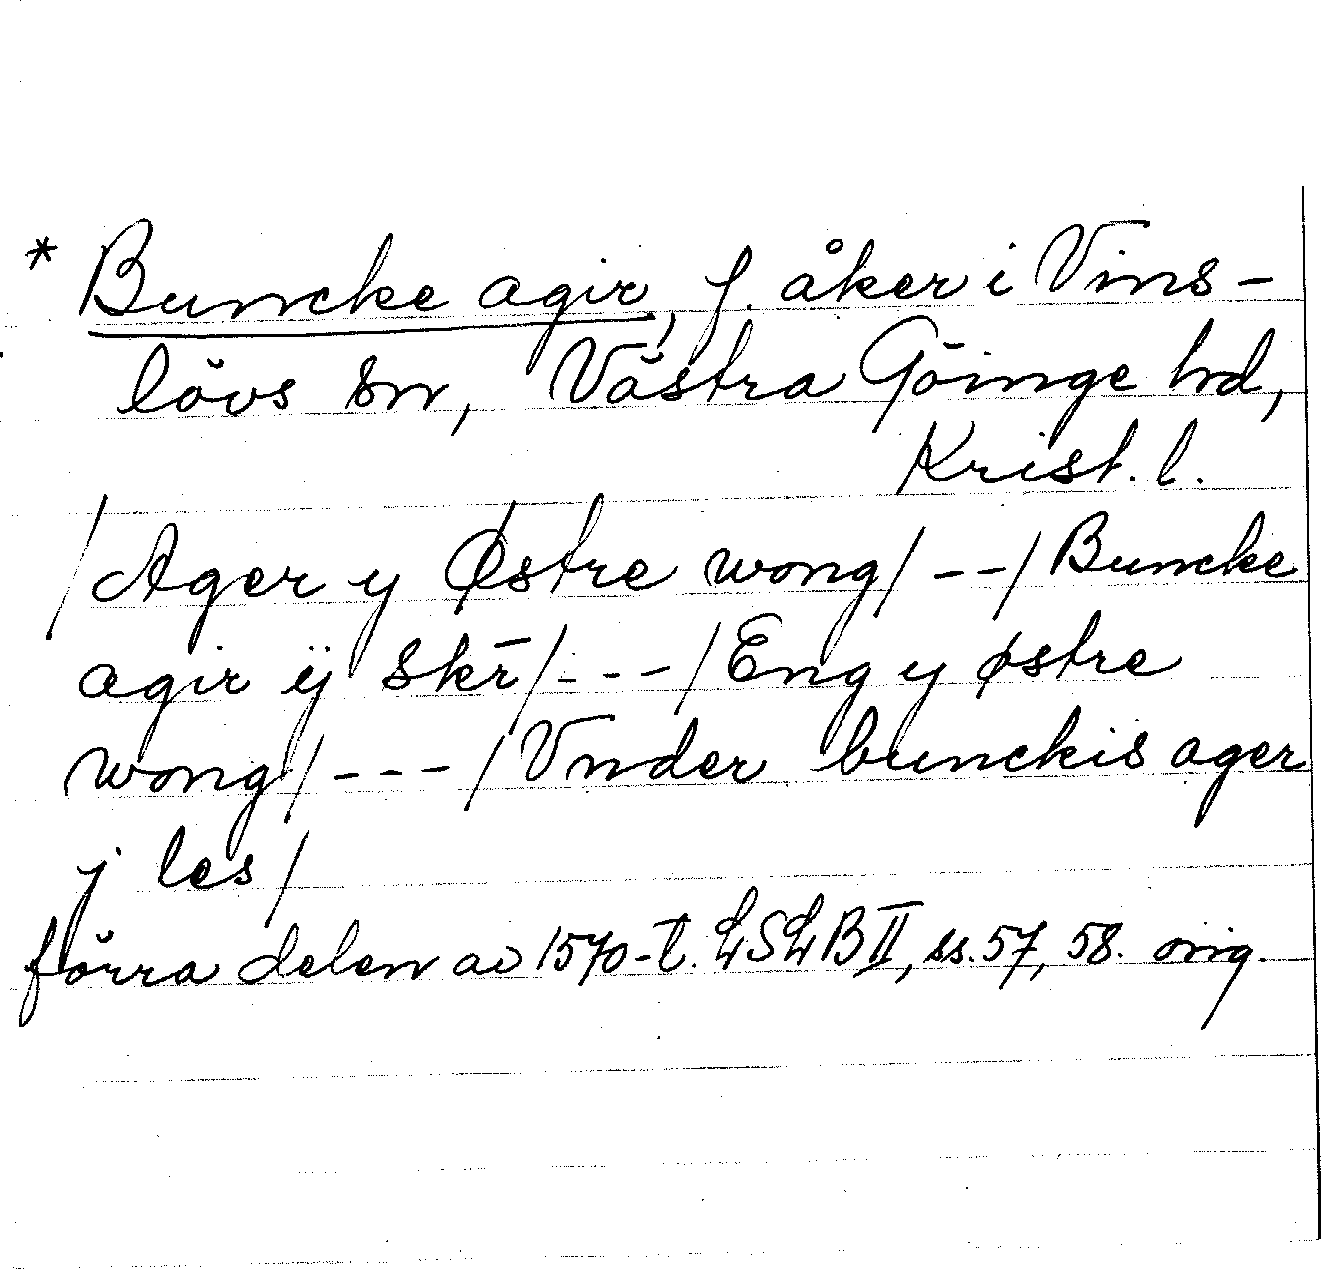 * Buncke agir, f. åker i Vins-
lövs sn, Västra Göinge hd,
Krist. l.
/Ager y Østre wong/ -- /Buncke
agir ÿ skr̄/ --- /Eng y østre
wong/ --- /Vnder bunckis ager
j les/
förra delen av 1570-t. LSLB II, ss. 57, 58. orig.